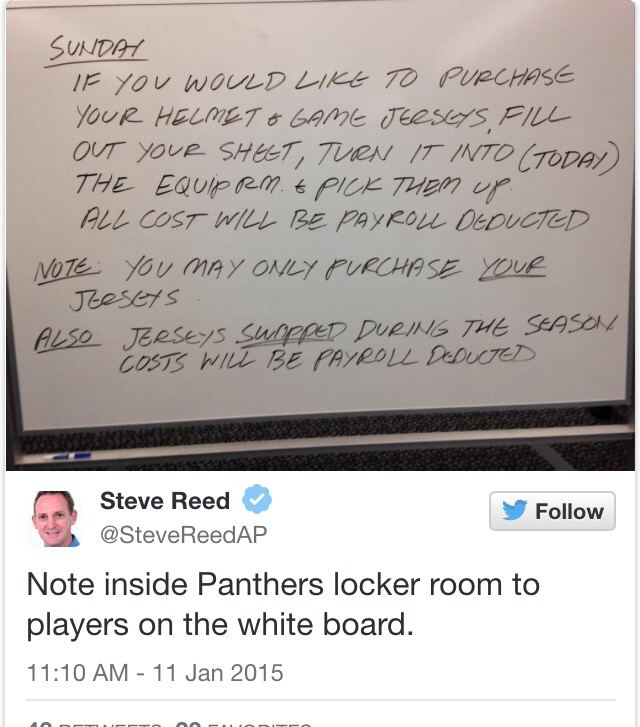 SUNDAY
IF YOU WOULD LIKE TO PURCHASE
YOUR HELMET & GAME JERSEYS, FILL
OUT YOUR SHEET, TURN IT INTO (TODAY)
THE EQUIP RM. & PICK THEM UP.
ALL COST WILL BE PAYROLL DEDUCTED
NOTE: YOU MAY ONLY PURCHASE YOUR
JERSEYS
ALSO JERSEYS SWAPPED DURING THE SEASON
COSTS WILL BE PAYROLL DEDUCTED
Steve Reed
@SteveReedAP
Follow
Note inside Panthers locker room to
players on the white board.
11:10 AM - 11 Jan 2015
RETWEETS FAVORITES